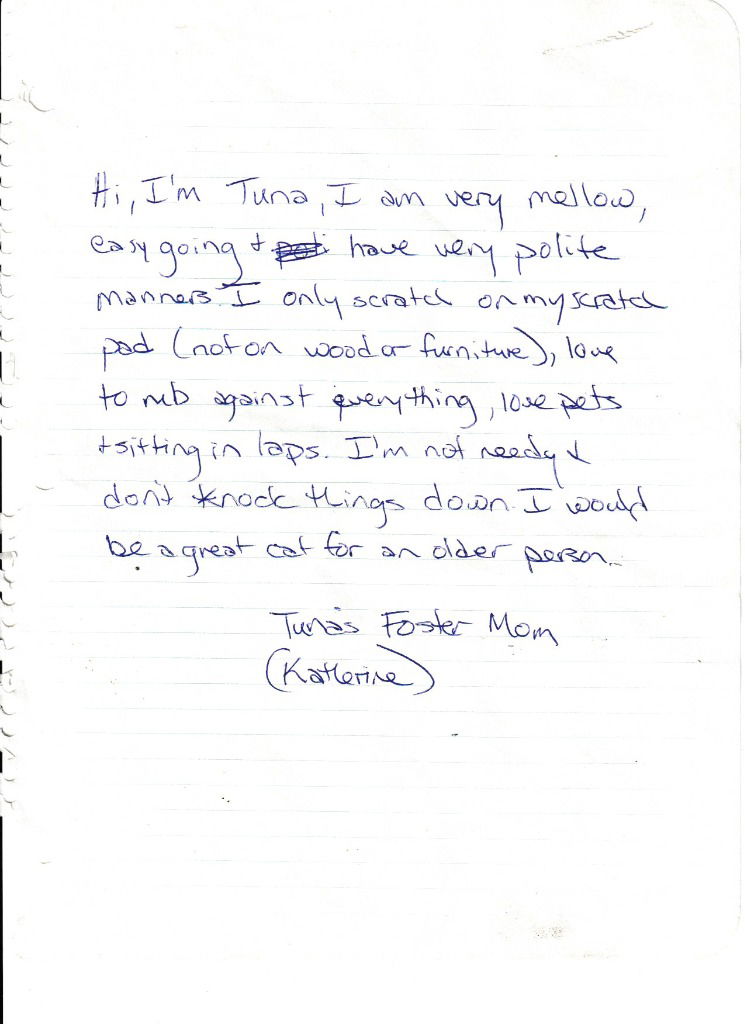 Hi, I'm Tuna, I am very mellow,
easy going + have very polite
manners. I only scratch on my scratch
pad (not on wood or furniture), love
to rub against everything, love pets
+ sitting in laps. I'm not needy &
don't knock things down. I would
be a great cat for an older person.
Tuna's Foster Mom
(Katherine)